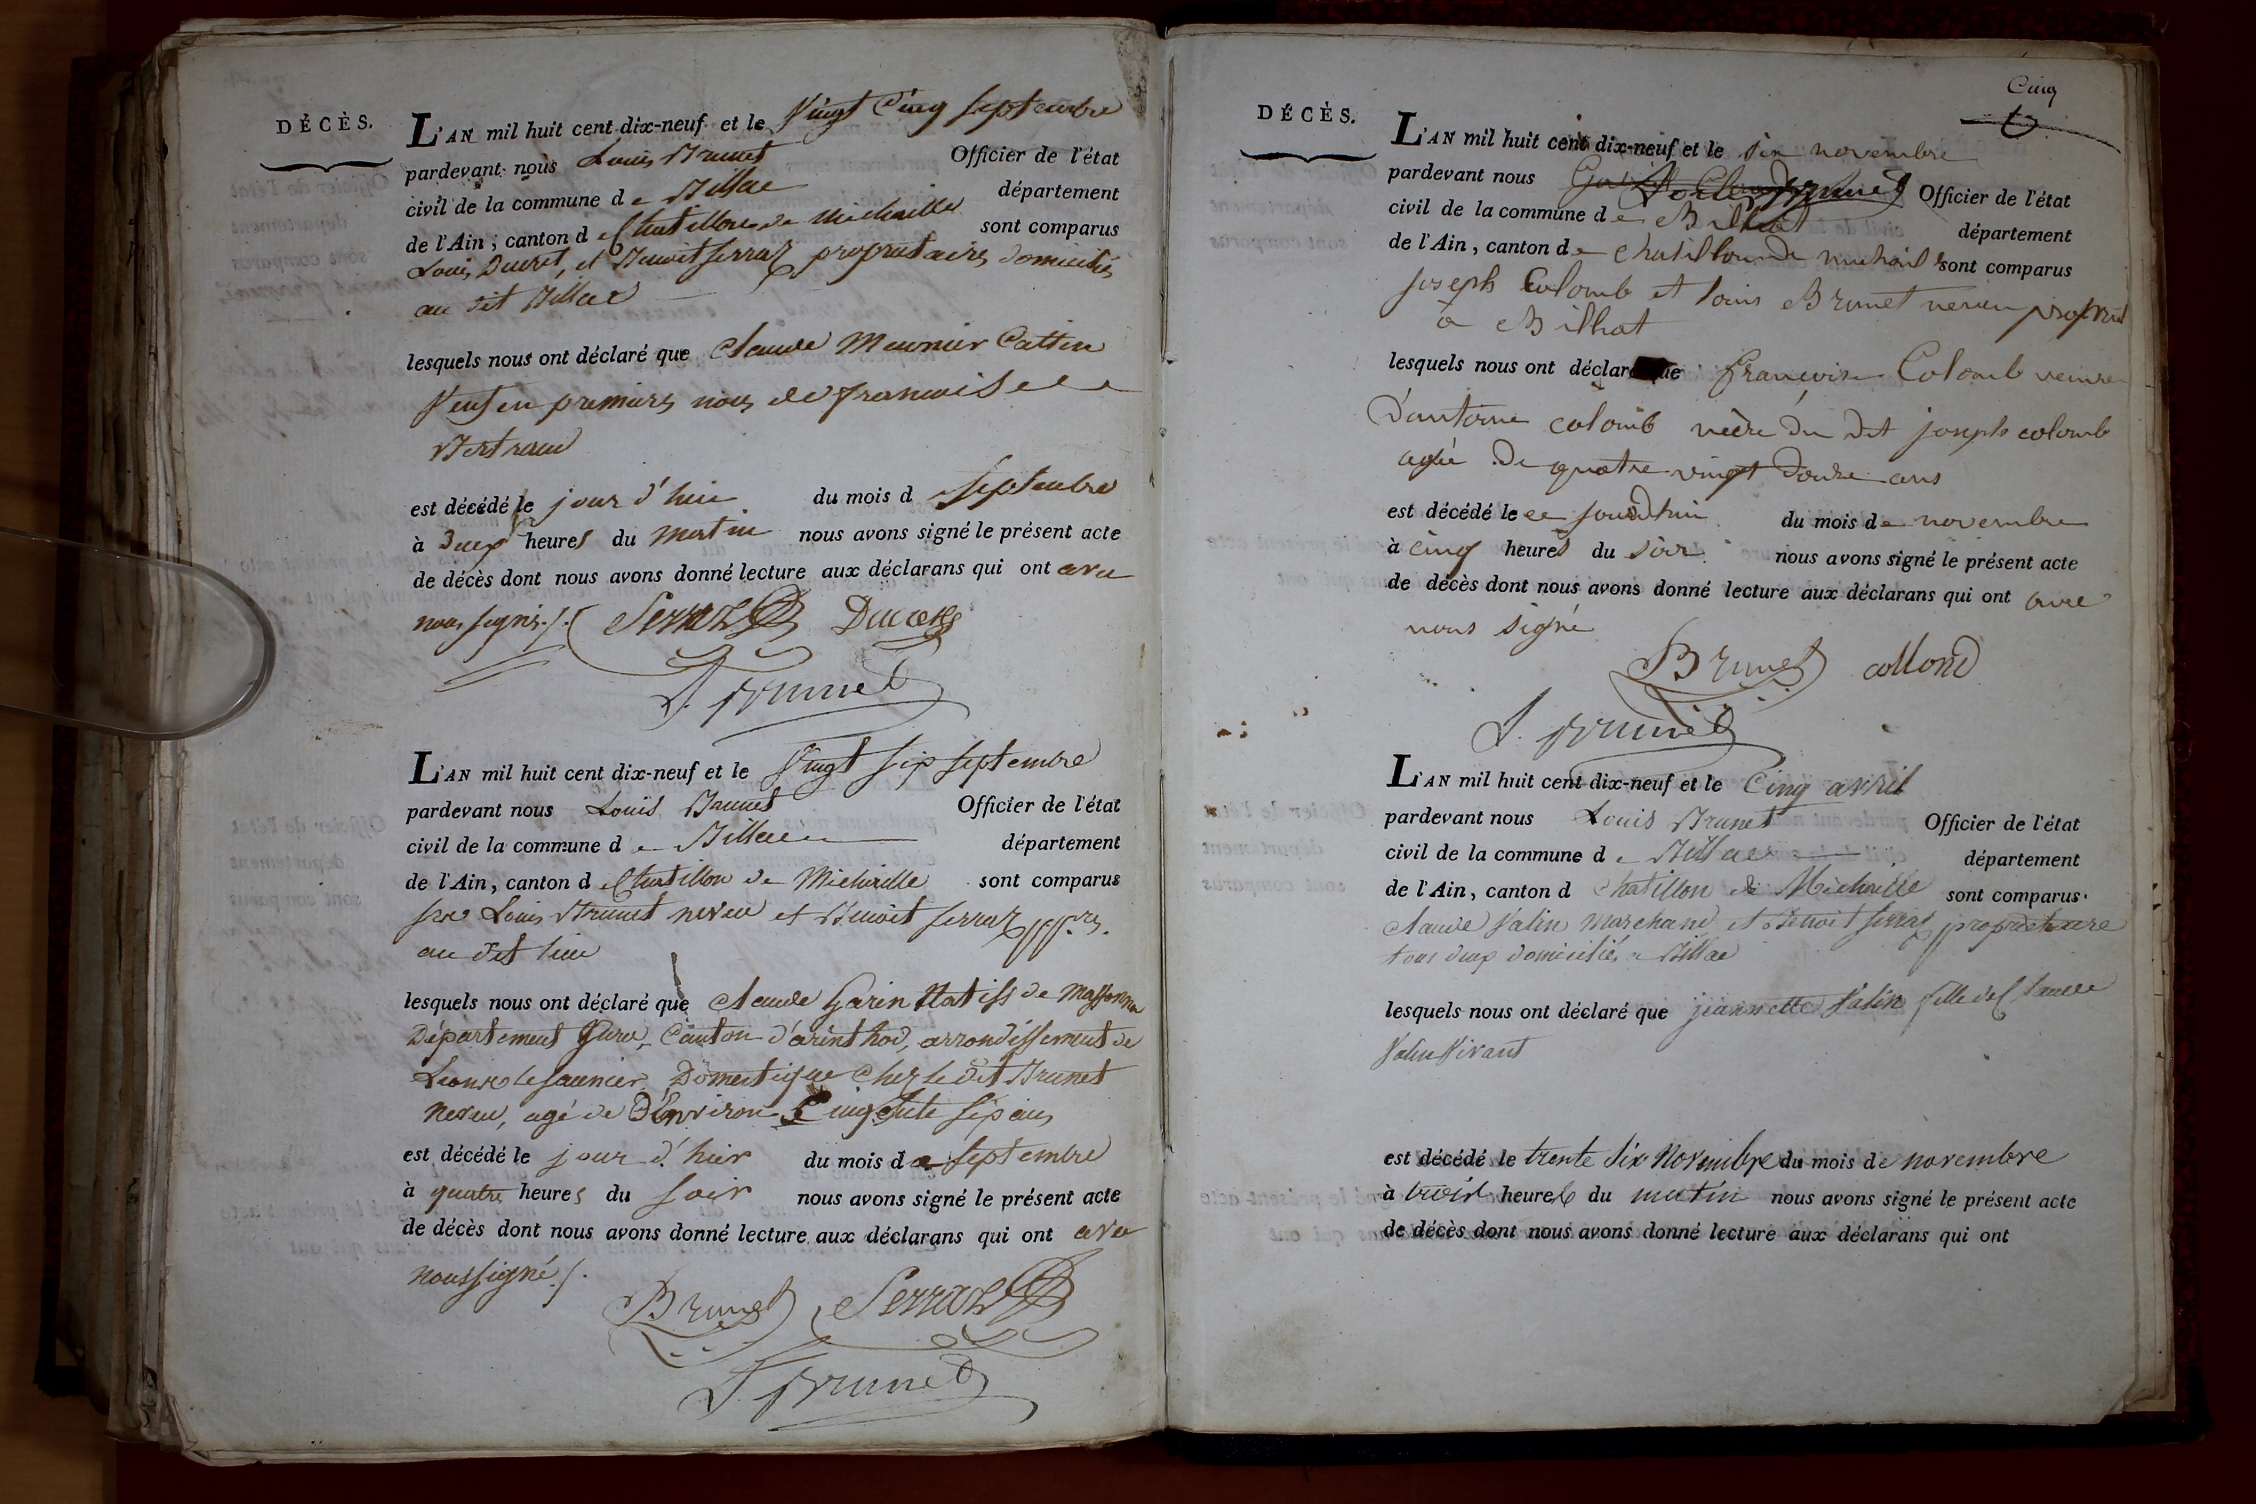 DÉCÈS.
L'AN mil huit cent dix-neuf et le Vingt Cinq septembre
pardevant nous Louis Brunet Officier de l'état
civil de la commune de Billac département
de l'Ain, canton d Chatillon de Michaille sont comparus
Louis Ducret, et Benoit Serraz propriétaires domiciliés
au dit Billac
lesquels nous ont déclaré que Claude Meunier Cattin
Veuf en premiers noces de francoise
Bertrand
est décédé le jour d'hier du mois d septembre
à Deux heures du matin nous avons signé le présent acte
de décès dont nous avons donné lecture aux déclarans qui ont avec
nous signé ./.
Serraz Ducret
L. Brunet
L'AN mil huit cent dix-neuf et le Vingt six septembre
pardevant nous Louis Brunet Officier de l'état
civil de la commune de Billac département
de l'Ain, canton d Chatillon de Michaille sont comparus
Louis Brunet neveu et Benoit Serraz
au dit lieu
lesquels nous ont déclaré que Claude Garin Natiff de
Département Jura, Canton d'arinthod, arrondissement de
Lons le saunier, Domestique chez le dit Brunet
neveu, agé de D'Environ Cinquante six ans
est décédé le jour d'hier du mois de septembre
à quatre heures du soir nous avons signé le présent acte
de décès dont nous avons donné lecture aux déclarans qui ont avec
nous signé ./.
Brunet Serraz
L. Brunet
Cinq
DÉCÈS.
L'AN mil huit cent dix-neuf et le six novembre
pardevant nous Officier de l'état
civil de la commune de Billiat département
de l'Ain, canton de chatillon de michaile sont comparus
joseph Colomb et louis Brunet neveu
a Billiat
lesquels nous ont déclaré que françoise Colomb veuve
d'antoine colomb mère du dit joseph colomb
agée de quatre vingt douze ans
est décédé le ce jourdhui du mois de novembre
à cinq heures du soir nous avons signé le présent acte
de décès dont nous avons donné lecture aux déclarans qui ont avec
nous signé
Brunet collond
L. Brunet
L'AN mil huit cent dix-neuf et le Cinq avril
pardevant nous Louis Brunet Officier de l'état
civil de la commune de Billac département
de l'Ain, canton d Chatillon de Michaille sont comparus
Claude Valin Marchand et Benoit Serraz propriétaire
tous deux domiciliés a Billac
lesquels nous ont déclaré que jeannette Valin fille de Claude
Valin Vivant
est décédé le trente six Novembre du mois de novembre
à trois heures du matin nous avons signé le présent acte
de décès dont nous avons donné lecture aux déclarans qui ont